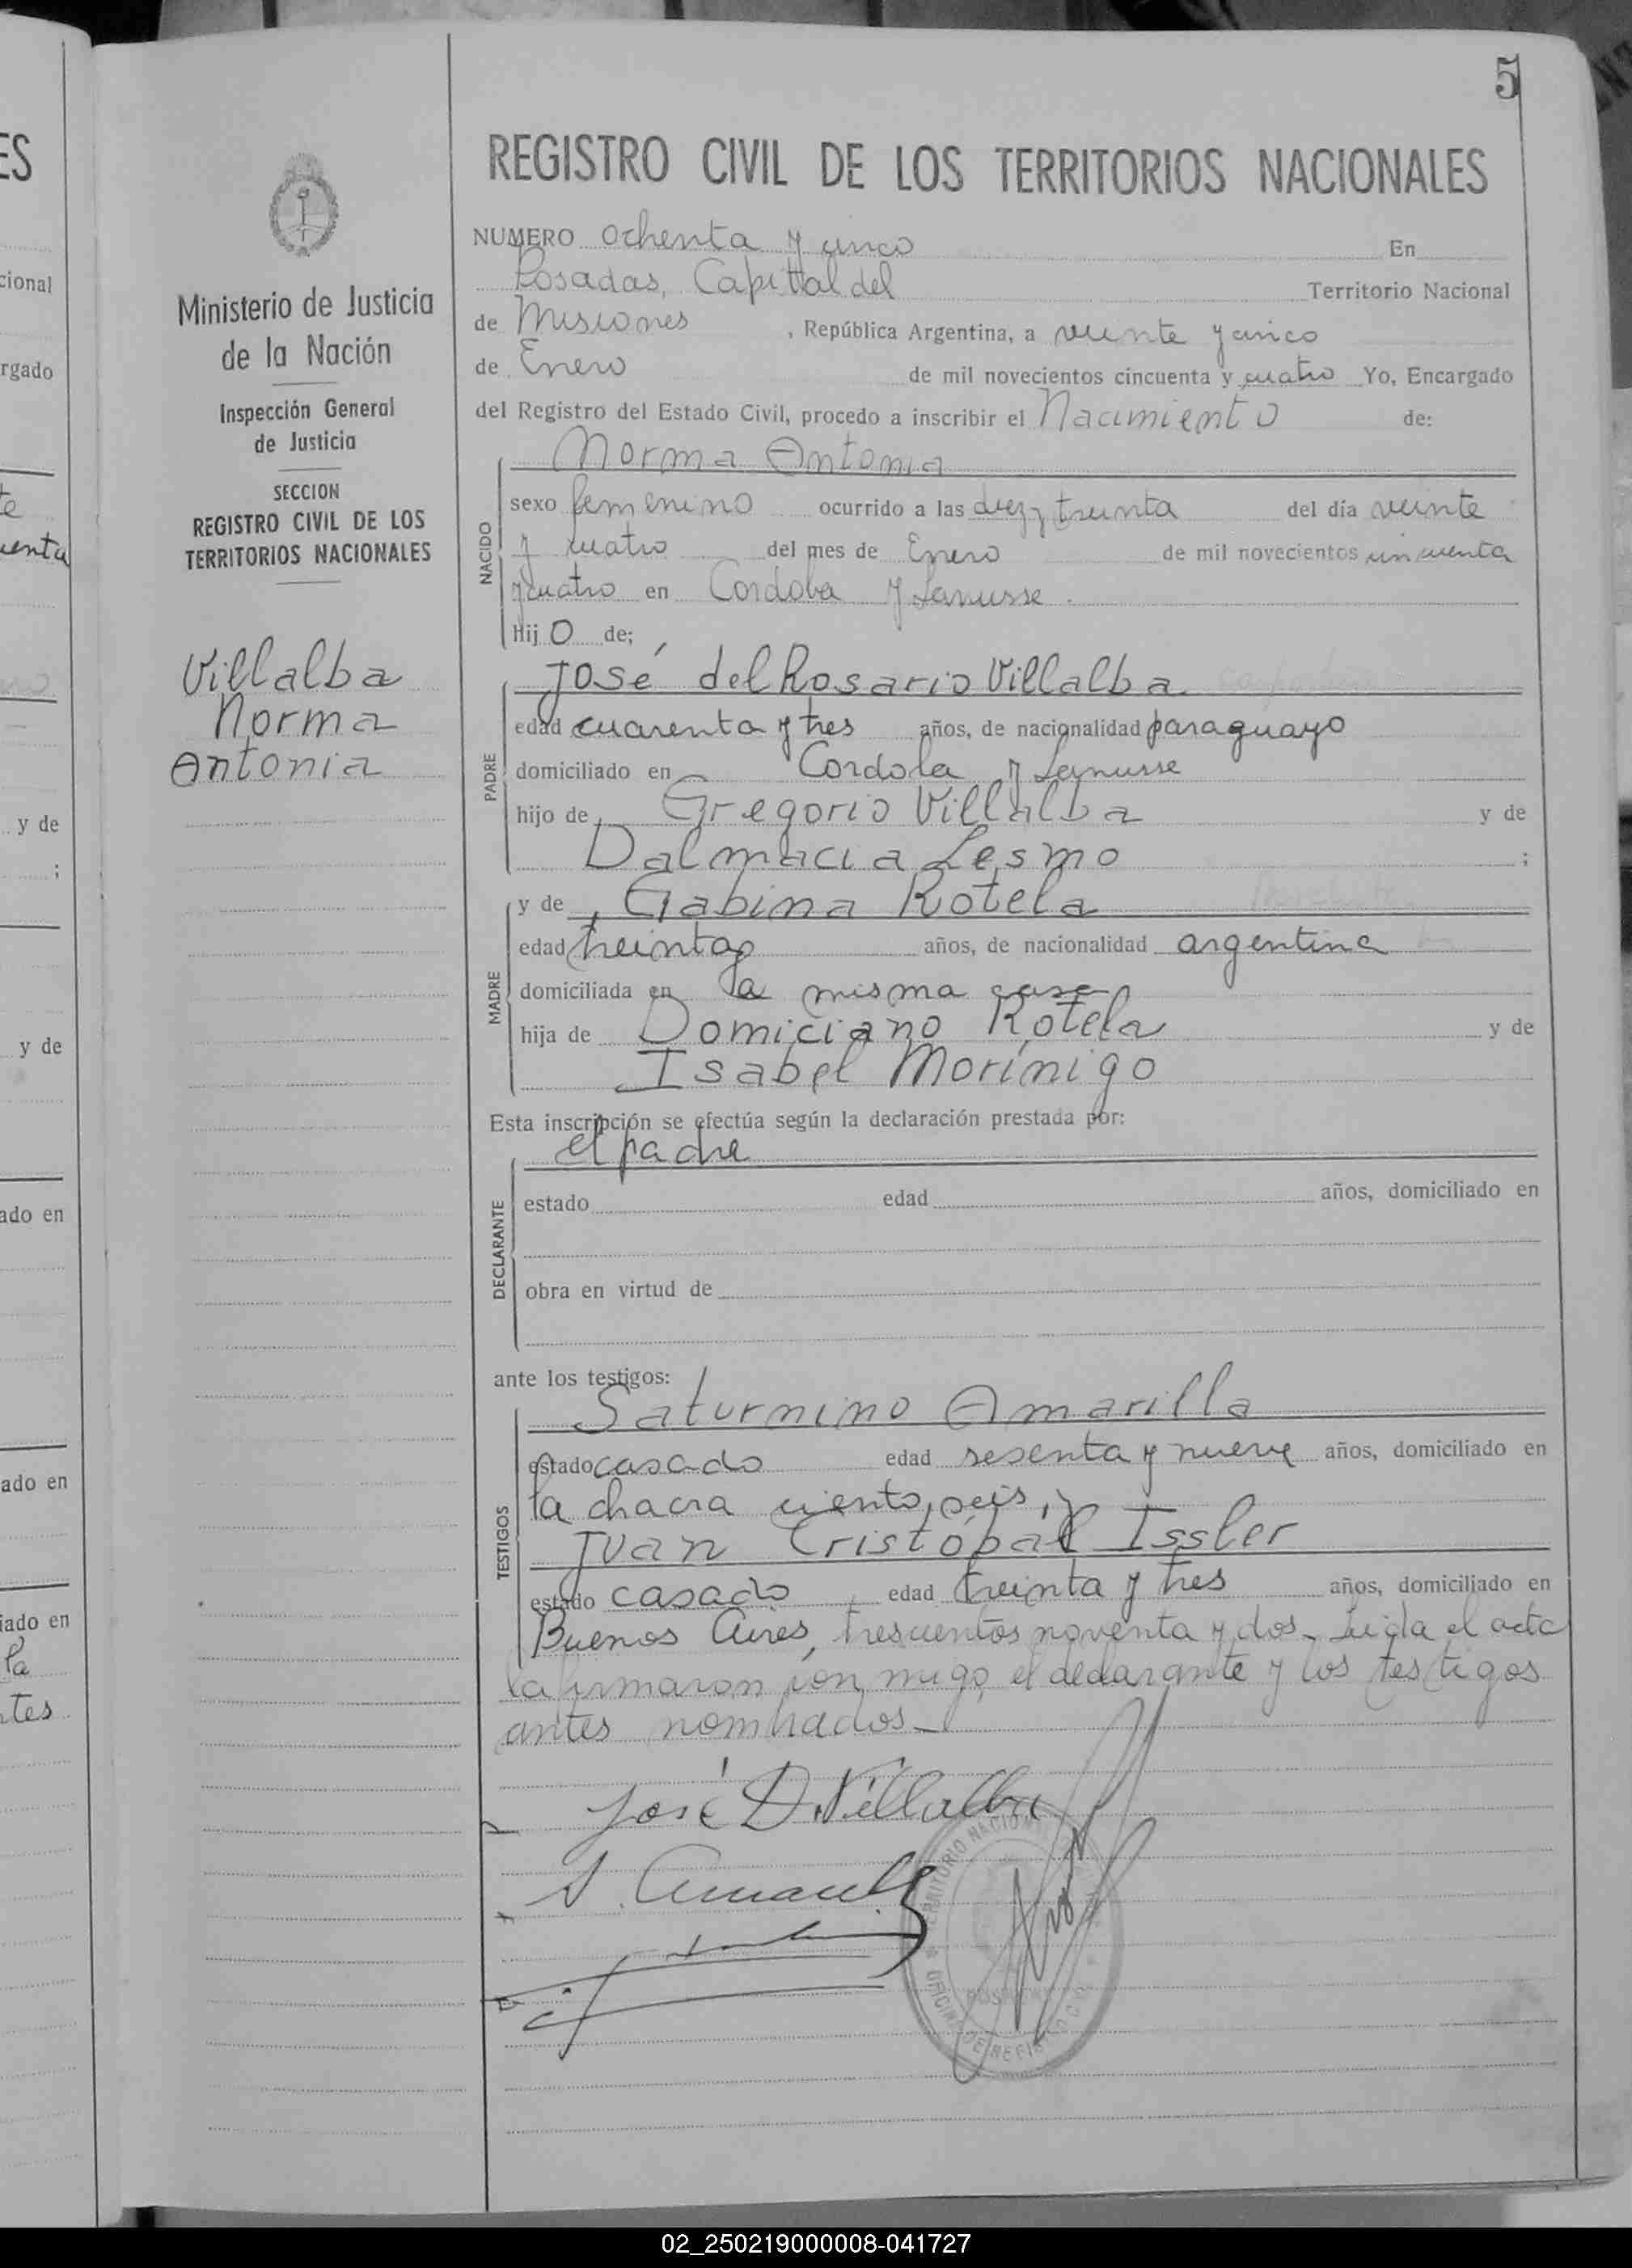 5
REGISTRO CIVIL DE LOS TERRITORIOS NACIONALES
NUMERO ochenta y cinco En
Posadas, Capittal del Territorio Nacional
de Misiones , República Argentina, a veinte y cinco
de Enero de mil novecientos cincuenta y cuatro Yo, Encargado
del Registro del Estado Civil, procedo a inscribir el Nacimiento de:
Norma Antonia
NACIDO
sexo femenino ocurrido a las diez y treinta del día veinte
y cuatro del mes de Enero de mil novecientos cincuenta
y cuatro en Cordoba y Lanusse.
Hij o de;
José del Rosario Villalba
PADRE
edad cuarenta y tres años, de nacionalidad paraguayo
domiciliado en Cordola y Lanusse
hijo de Gregorio Villalba y de
Dalmacia Lesmo ;
y de Gabina Rotela
MADRE
edad treinta años, de nacionalidad argentina
domiciliada en la misma casa
hija de Domiciano Rotela y de
Isabel Morínigo
Esta inscripción se efectúa según la declaración prestada por:
el padre
DECLARANTE
estado edad años, domiciliado en
obra en virtud de
ante los testigos:
Saturnino Amarilla
TESTIGOS
estado casado edad sesenta y nueve años, domiciliado en
la chacra ciento seis, y
Juan Cristóbal Issler
estado casado edad treinta y tres años, domiciliado en
Buenos Aires, trescientos noventa y dos. Leida el acta
la firmaron con migo, el declarante y los testigos
antes nombrados.
José D. Villalba
S. Amarilla
TERRITORIO NACIONAL
OFICINA DE REGISTRO
Ministerio de Justicia
de la Nación
Inspección General
de Justicia
SECCION
REGISTRO CIVIL DE LOS
TERRITORIOS NACIONALES
Villalba
Norma
Antonia
ES
cional
rgado
te
uenta
y de
;
y de
ado en
ado en
iado en
la
tes
02_250219000008-041727